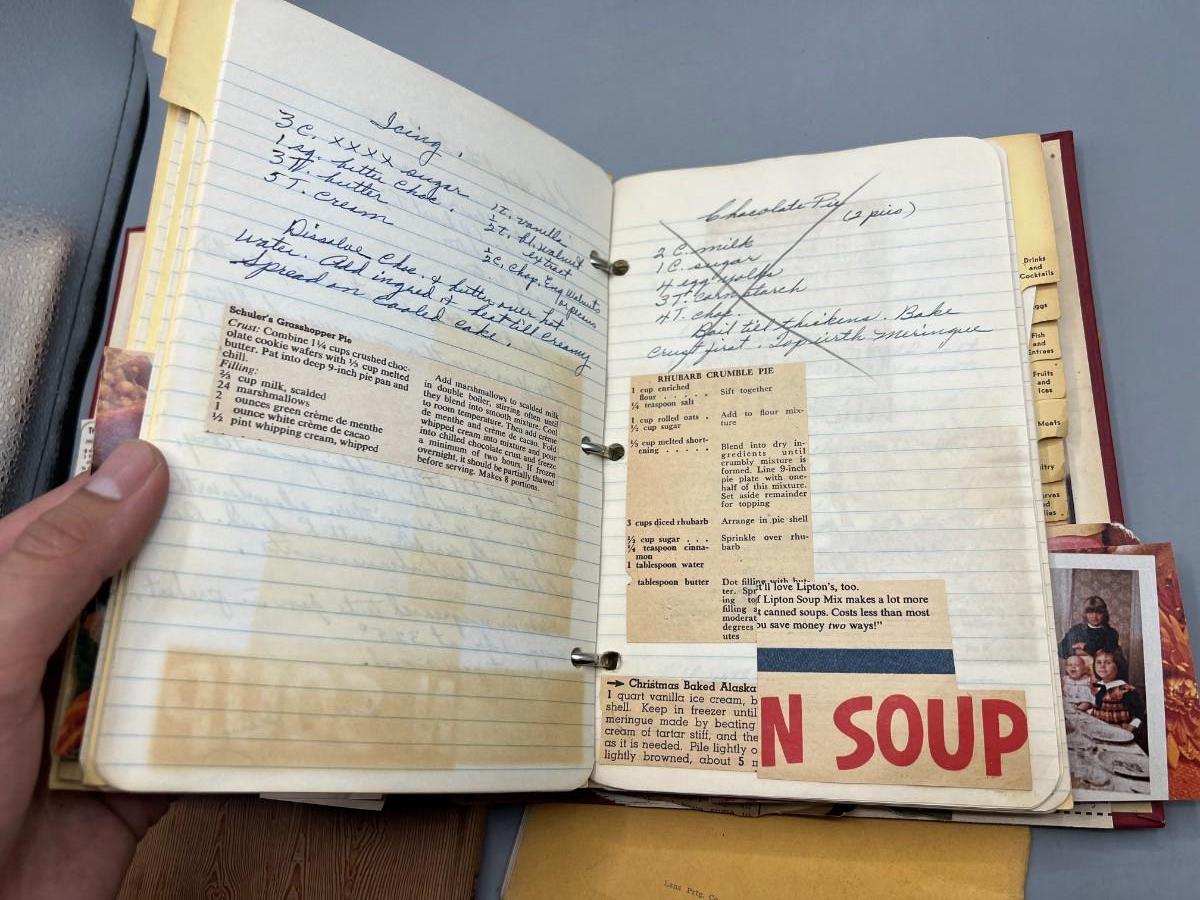 Icing.
3 C. xxxx sugar
1 sq. bitter choc.
3 T. butter
5 T. cream
1 t. vanilla
½ t. bl. walnut
extract
½ C. chop. Eng walnuts
or pecans
Dissolve choc. & butter over hot
water. Add ingred & heat till creamy
Spread on cooled cake.
Schuler's Grasshopper Pie
Crust: Combine 1¼ cups crushed choc-
olate cookie wafers with ⅓ cup melted
butter. Pat into deep 9-inch pie pan and
chill.
Filling:
⅔ cup milk, scalded
24 marshmallows
2 ounces green crème de menthe
1 ounce white crème de cacao
½ pint whipping cream, whipped
Add marshmallows to scalded milk
in double boiler, stirring often until
they blend into smooth mixture. Cool
to room temperature. Then add crème
de menthe and crème de cacao. Fold
whipped cream into mixture and pour
into chilled chocolate crust and freeze
a minimum of two hours. If frozen
overnight, it should be partially thawed
before serving. Makes 8 portions.
Chocolate Pie (2 pies)
2 C. milk
1 C. sugar
4 egg yolks
3 T. cornstarch
4 T. choc.
Boil til thickens. Bake
crust first. Top with Meringue
RHUBARB CRUMBLE PIE
1 cup enriched
flour . . . . . Sift together
¼ teaspoon salt
1 cup rolled oats . Add to flour mix-
½ cup sugar . . ture
⅓ cup melted short-
ening . . . . . Blend into dry in-
gredients until
crumbly mixture is
formed. Line 9-inch
pie plate with one-
half of this mixture.
Set aside remainder
for topping
3 cups diced rhubarb Arrange in pie shell
½ cup sugar . . . Sprinkle over rhu-
¼ teaspoon cinna- barb
mon
1 tablespoon water
tablespoon butter Dot filling with but-
ter. Spr
ing tof
filling a
moderat
degrees
utes
t'll love Lipton's, too.
f Lipton Soup Mix makes a lot more
t canned soups. Costs less than most
ou save money two ways!"
N SOUP
→ Christmas Baked Alaska
1 quart vanilla ice cream, b
shell. Keep in freezer until
meringue made by beating
cream of tartar stiff, and the
as it is needed. Pile lightly o
lightly browned, about 5 m
Drinks
and
Cocktails
ggs
Fish
and
Entrees
Fruits
and
ices
Meats
ltry
rves
nd
lies
Lans. Prtg. Co